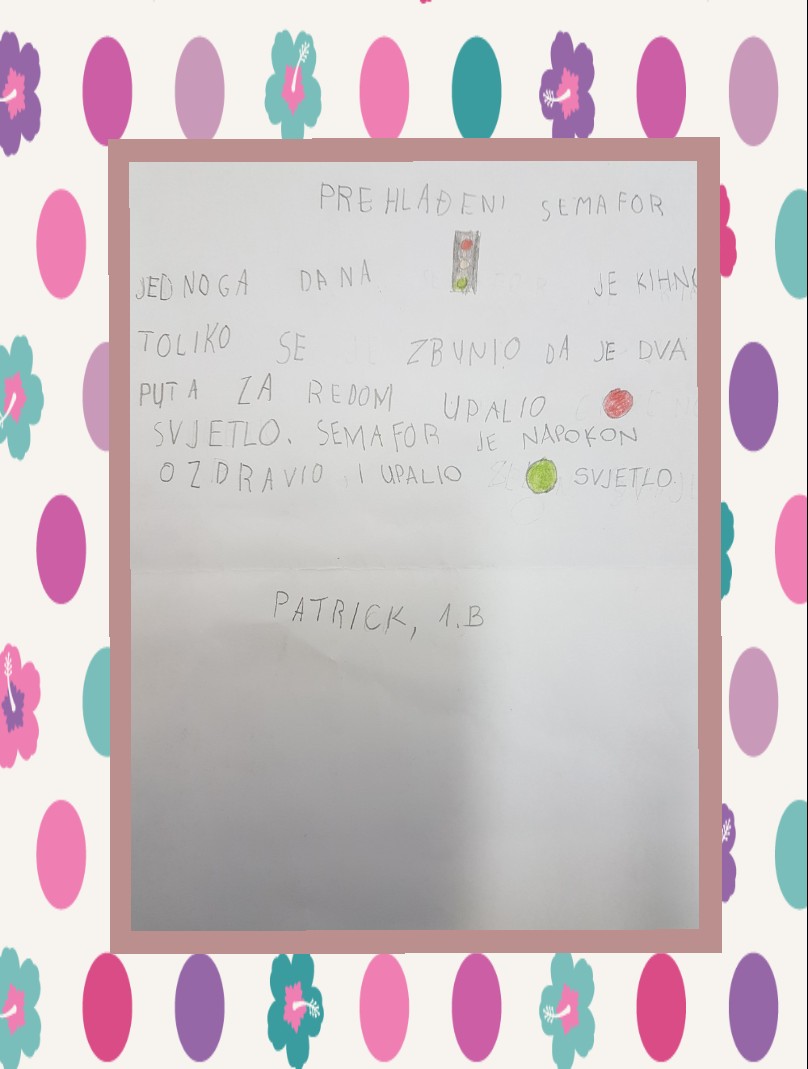 PREHLAĐENI SEMAFOR
JEDNOGA DANA JE
TOLIKO SE ZBUNIO DA JE DVA
PUTA ZA REDOM UPALIO
SVJETLO. SEMAFOR JE NAPOKON
OZDRAVIO I UPALIO SVJETLO.
PATRICK, 1.B